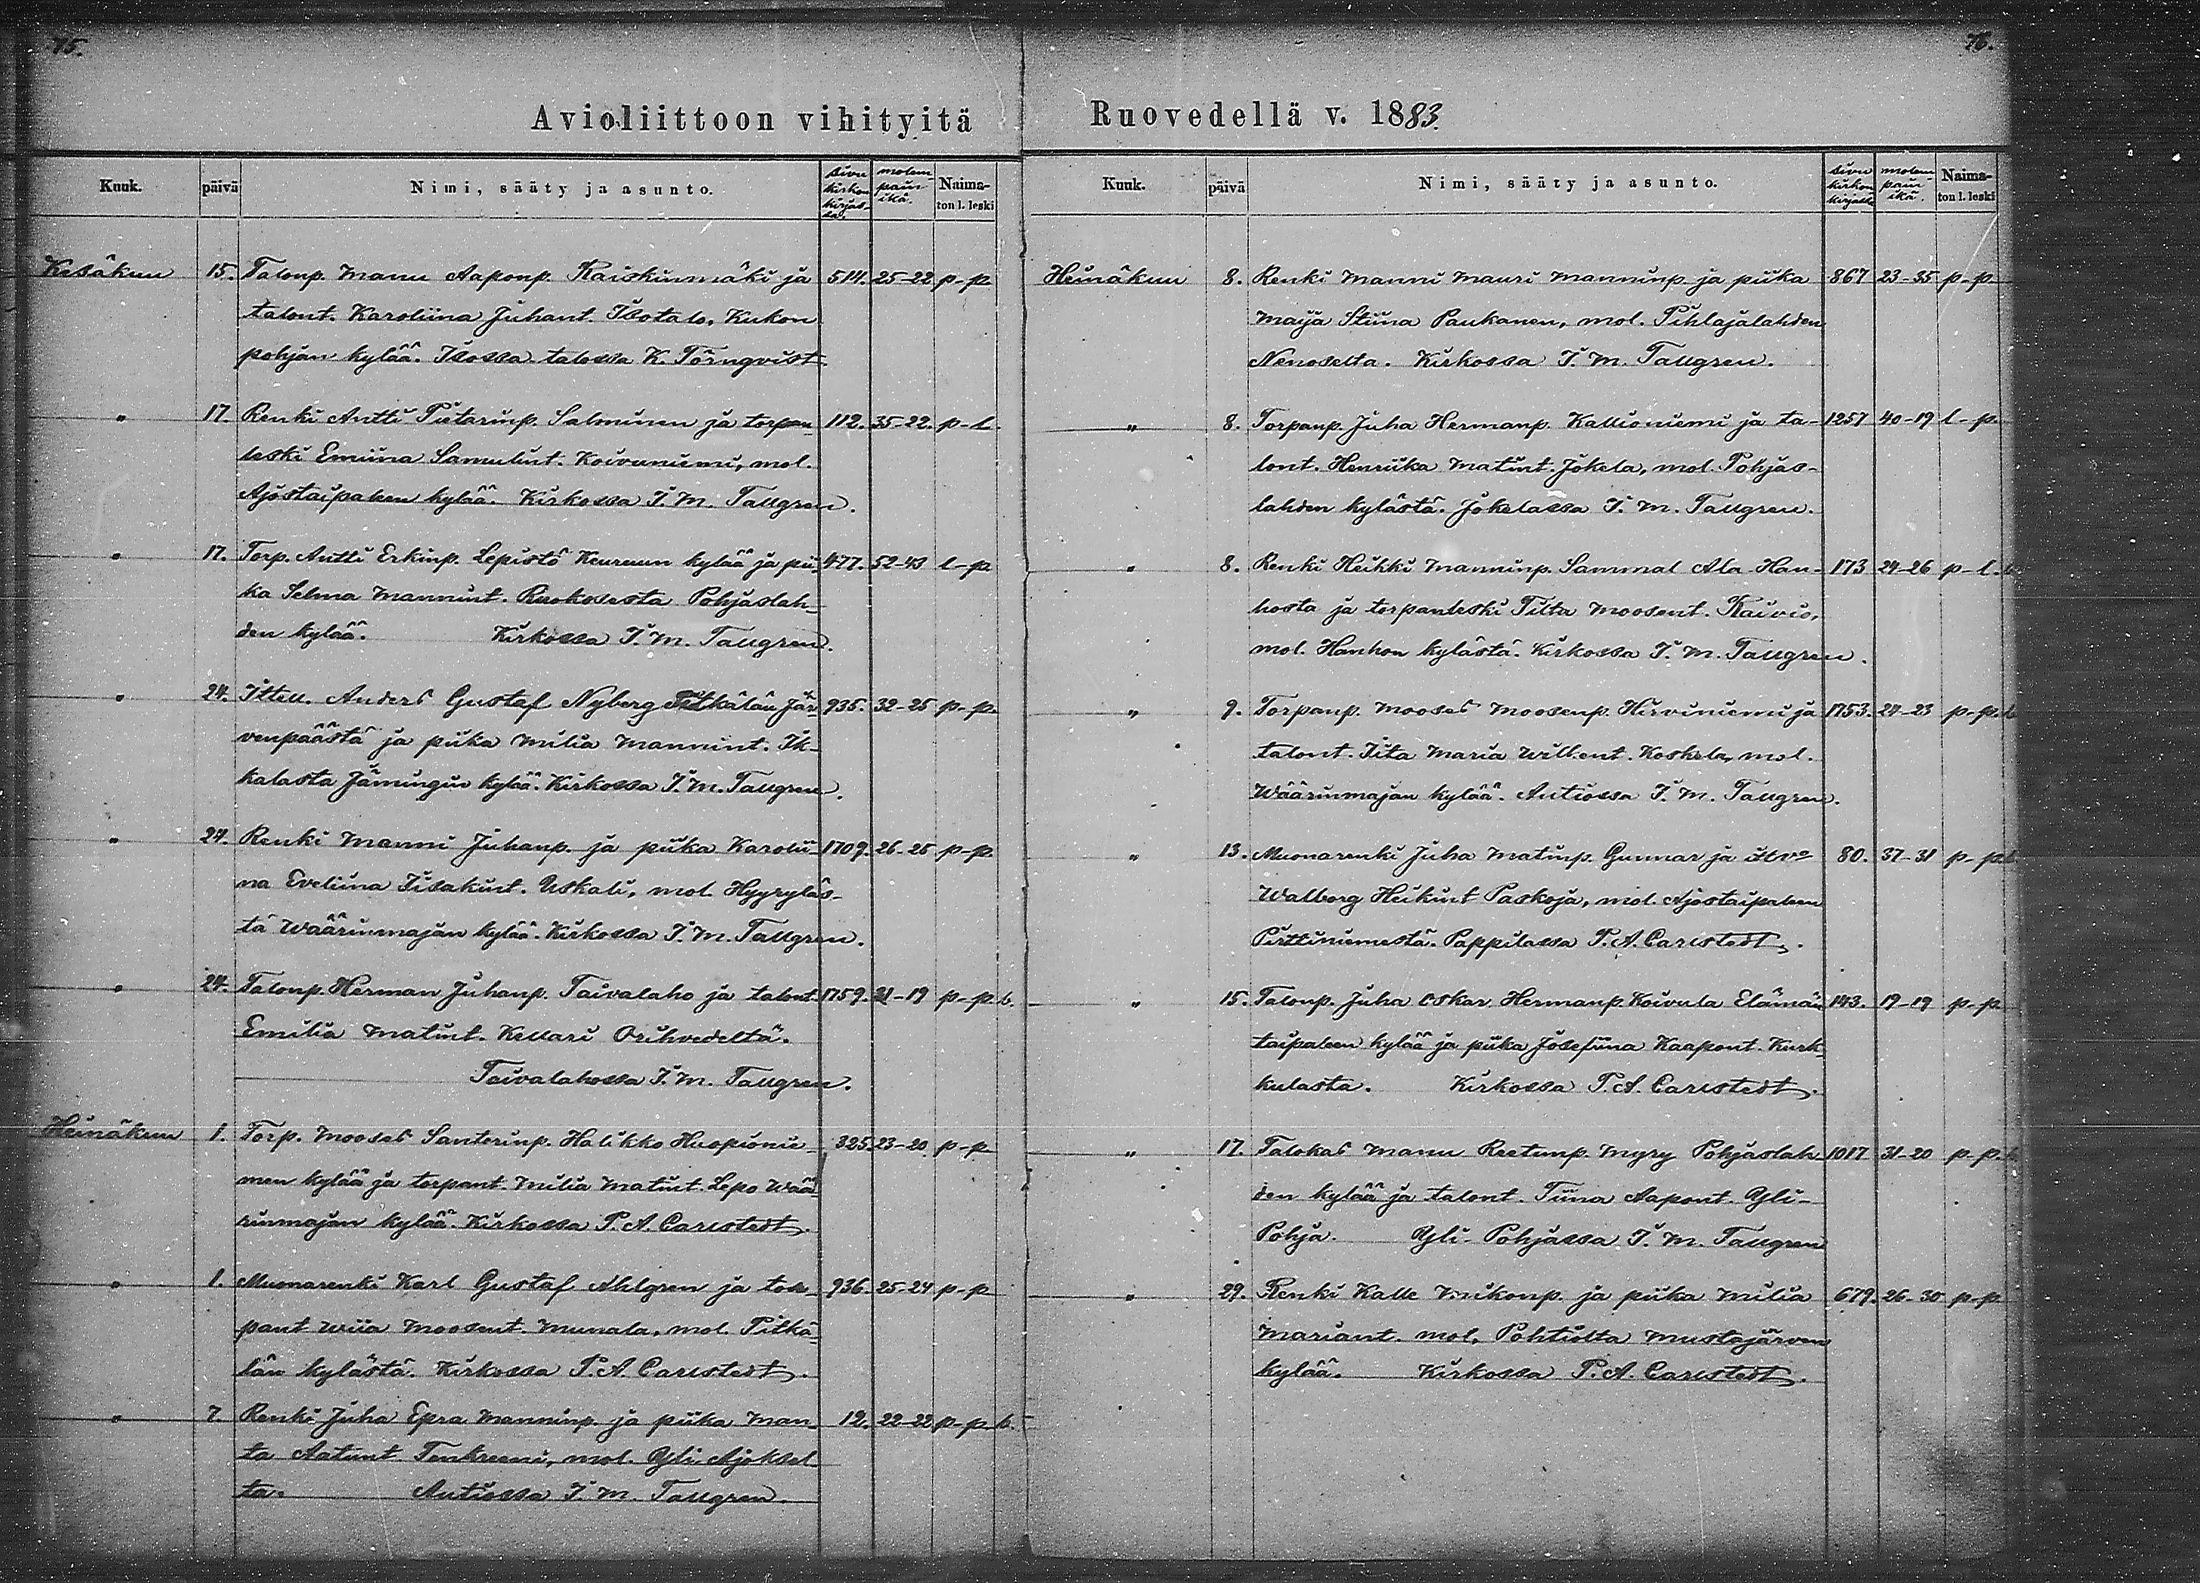 75.
Avioliittoon vihityitä
Kuuk. päivä Nimi, sääty ja asunto. sivu kirkonkirjassa. molempain ikä. Naimaton l. leski
Kesäkuu 15. Talonp. Manu Aaponp. Kaiskinmäki ja 514. 25-22 p-p.
talont. Karoliina Juhant. Isotalo, Kukon
pohjan kylää. Isossa talossa K. Törnqvist.
" 17. Renki Antti Pietarinp. Salminen ja torpan 112. 35-22. p-l.
leski Emiina Samulint. Koivuniemi, mol.
Ajostaipaleen kylää. Kirkossa I. M. Tallgren.
" 17. Torp. Antti Erkinp. Lepistö Keuruun kylää ja pii- 477. 52-43 l-p
ka Selma Mannint. Ruokosesta Pohjaslah-
den kylää. Kirkossa I. M. Tallgren.
" 24. Ittell. Anders Gustaf Nyberg Pitkälän Jär- 935. 32-25 p-p.
venpäästä ja piika Milia Mannint. Ik-
kalasta Jämingin kylää. Kirkossa I. M. Tallgren.
" 24. Renki Manni Juhanp. ja piika Karolii- 1709. 26-25 p-p.
na Eveliina Iisakint. Uskali, mol. Hyyryläs-
tä Wäärinmajan kylää. Kirkossa I. M. Tallgren.
" 24. Talonp. Herman Juhanp. Taivalaho ja talont. 1759. 21-19 p-p. b.
Emilia Matint. Kellari Orihvedeltä.
Taivalahossa I. M. Tallgren.
Heinäkuu 1. Torp. Mooses Santerinp. Halikko Huopionie- 325. 23-20 p-p
men kylää ja torpant. Milia Matint. Lepo Wää
rinmajan kylää. Kirkossa P. A. Carlstedt.
" 1. Muonarenki Karl Gustaf Ahlgren ja tor- 936. 25-24 p-p
pant Wiia Moosent. Munala, mol. Pitkä-
län kylästä. Kirkossa P. A. Carlstedt.
" 7. Renki Juha Epra Manninp. ja piika Man- 12. 22-22 p-p. b.
ta Aatunt Tenkreeni, mol. Yli-Ajoksel
ta. Autiossa I. M. Tallgren.
76.
Ruovedellä v. 1883.
Kuuk. päivä Nimi, sääty ja asunto. sivu kirkonkirjassa molempain ikä. Naimaton l. leski
Heinäkuu 8. Renki Manni Mauri Manninp. ja piika 867 23-35 p-p
Maija Stiina Paukanen, mol. Pihlajalahden
Nenoselta. Kirkossa I. M. Tallgren.
" 8. Torpanp. Juha Hermanp. Kallioniemi ja ta- 1257 40-19 l-p.
lont. Henriika Matint. Jokela, mol. Pohjas-
lahden kylästä. Jokelassa I. M. Tallgren.
" 8. Renki Heikki Manninp. Sammal Ala Han- 173 24-26 p-l.
hosta ja torpanleski Tilta Moosent. Kaivio,
mol. Hanhon kylästä. Kirkossa I. M. Tallgren.
" 9. Torpanp. Mooses Moosenp. Hirviniemi ja 1753. 24-23 p-p.
talont. Iita Maria Willent. Koskela, mol.
Wäärinmajan kylää. Autiossa I. M. Tallgren.
" 13. Muonarenki Juha Matinp. Gunnar ja 80. 37-31 p-p
Walborg Heikint Paskoja, mol. Ajostaipaleen
Pirttiniemestä. Pappilassa P. A. Carlstedt.
" 15. Talonp. Juha Oskar Hermanp. Koivula Elämän 143. 19-19 p-p.
taipaleen kylää ja piika Josefiina Kaapont. Kurk-
kulasta. Kirkossa P. A. Carlstedt.
" 17. Talokas Manu Reetunp. Myry Pohjaslah 1017 31-20 p-p.
den kylää ja talont. Tiina Aapont. Yli-
Pohja. Yli-Pohjassa I. M. Tallgren
" 29. Renki Kalle Miikonp. ja piika Milia 679. 26-30 p-p
Mariant. mol. Pohtiolta Mustajärven
kylää. Kirkossa P. A. Carlstedt.